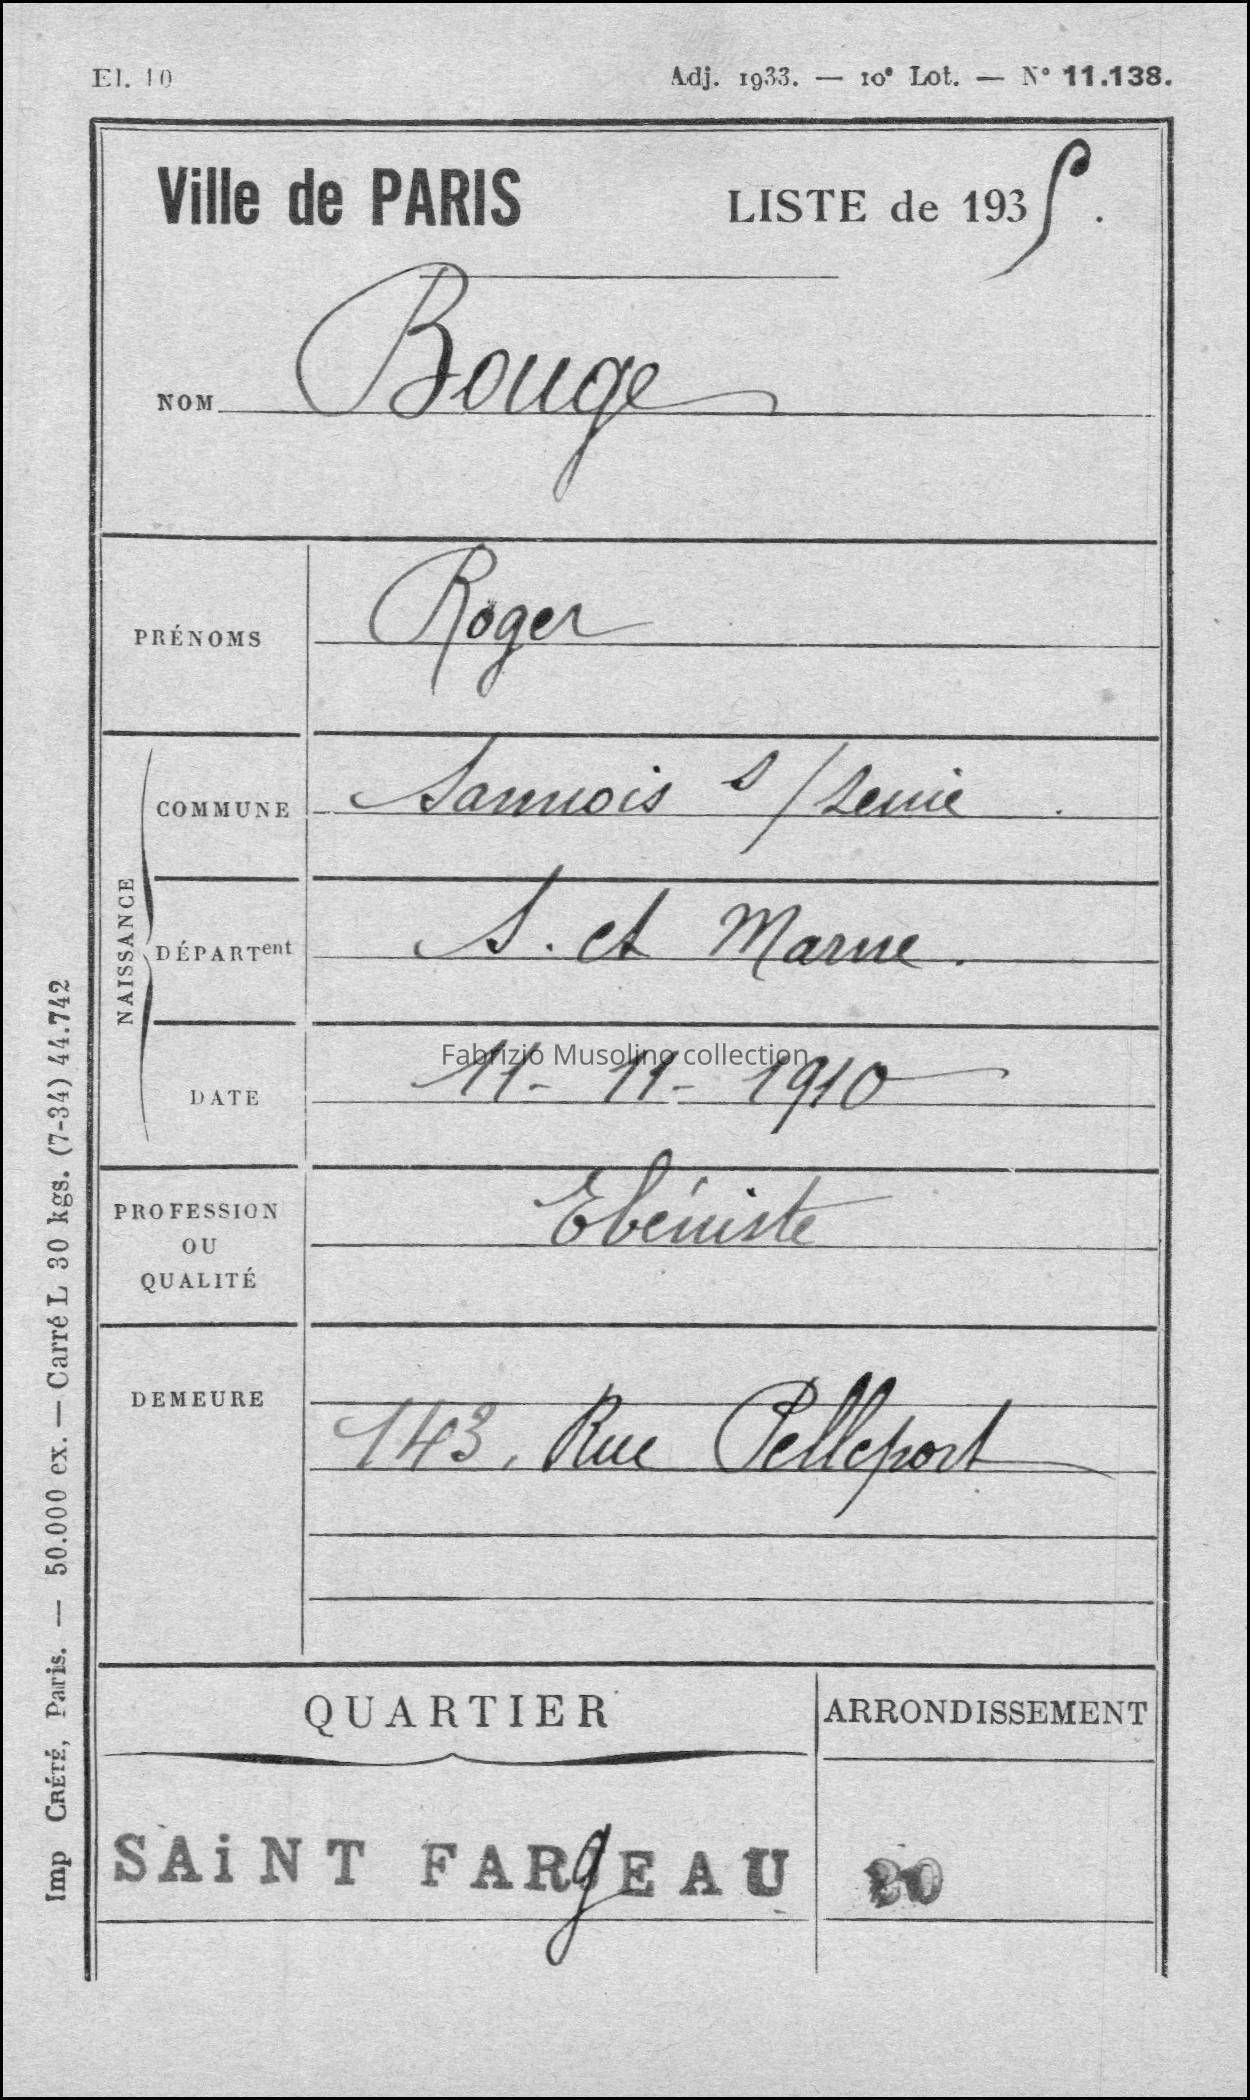 El. 10
Adj. 1933. — 10e Lot. — N° 11.138.
Ville de PARIS
LISTE de 1935.
NOM Bouge
PRÉNOMS Roger
NAISSANCE
COMMUNE Sannois s/Seine
DÉPARTent S. et Marne.
Fabrizio Musolino collection
DATE 11-11-1910
PROFESSION OU QUALITÉ Ebéniste
DEMEURE 143, Rue Pelleport
QUARTIER
ARRONDISSEMENT
SAiNT FARgEAU
20
Imp CRÉTÉ, Paris. — 50.000 ex. — Carré L 30 kgs. (7-34) 44.742